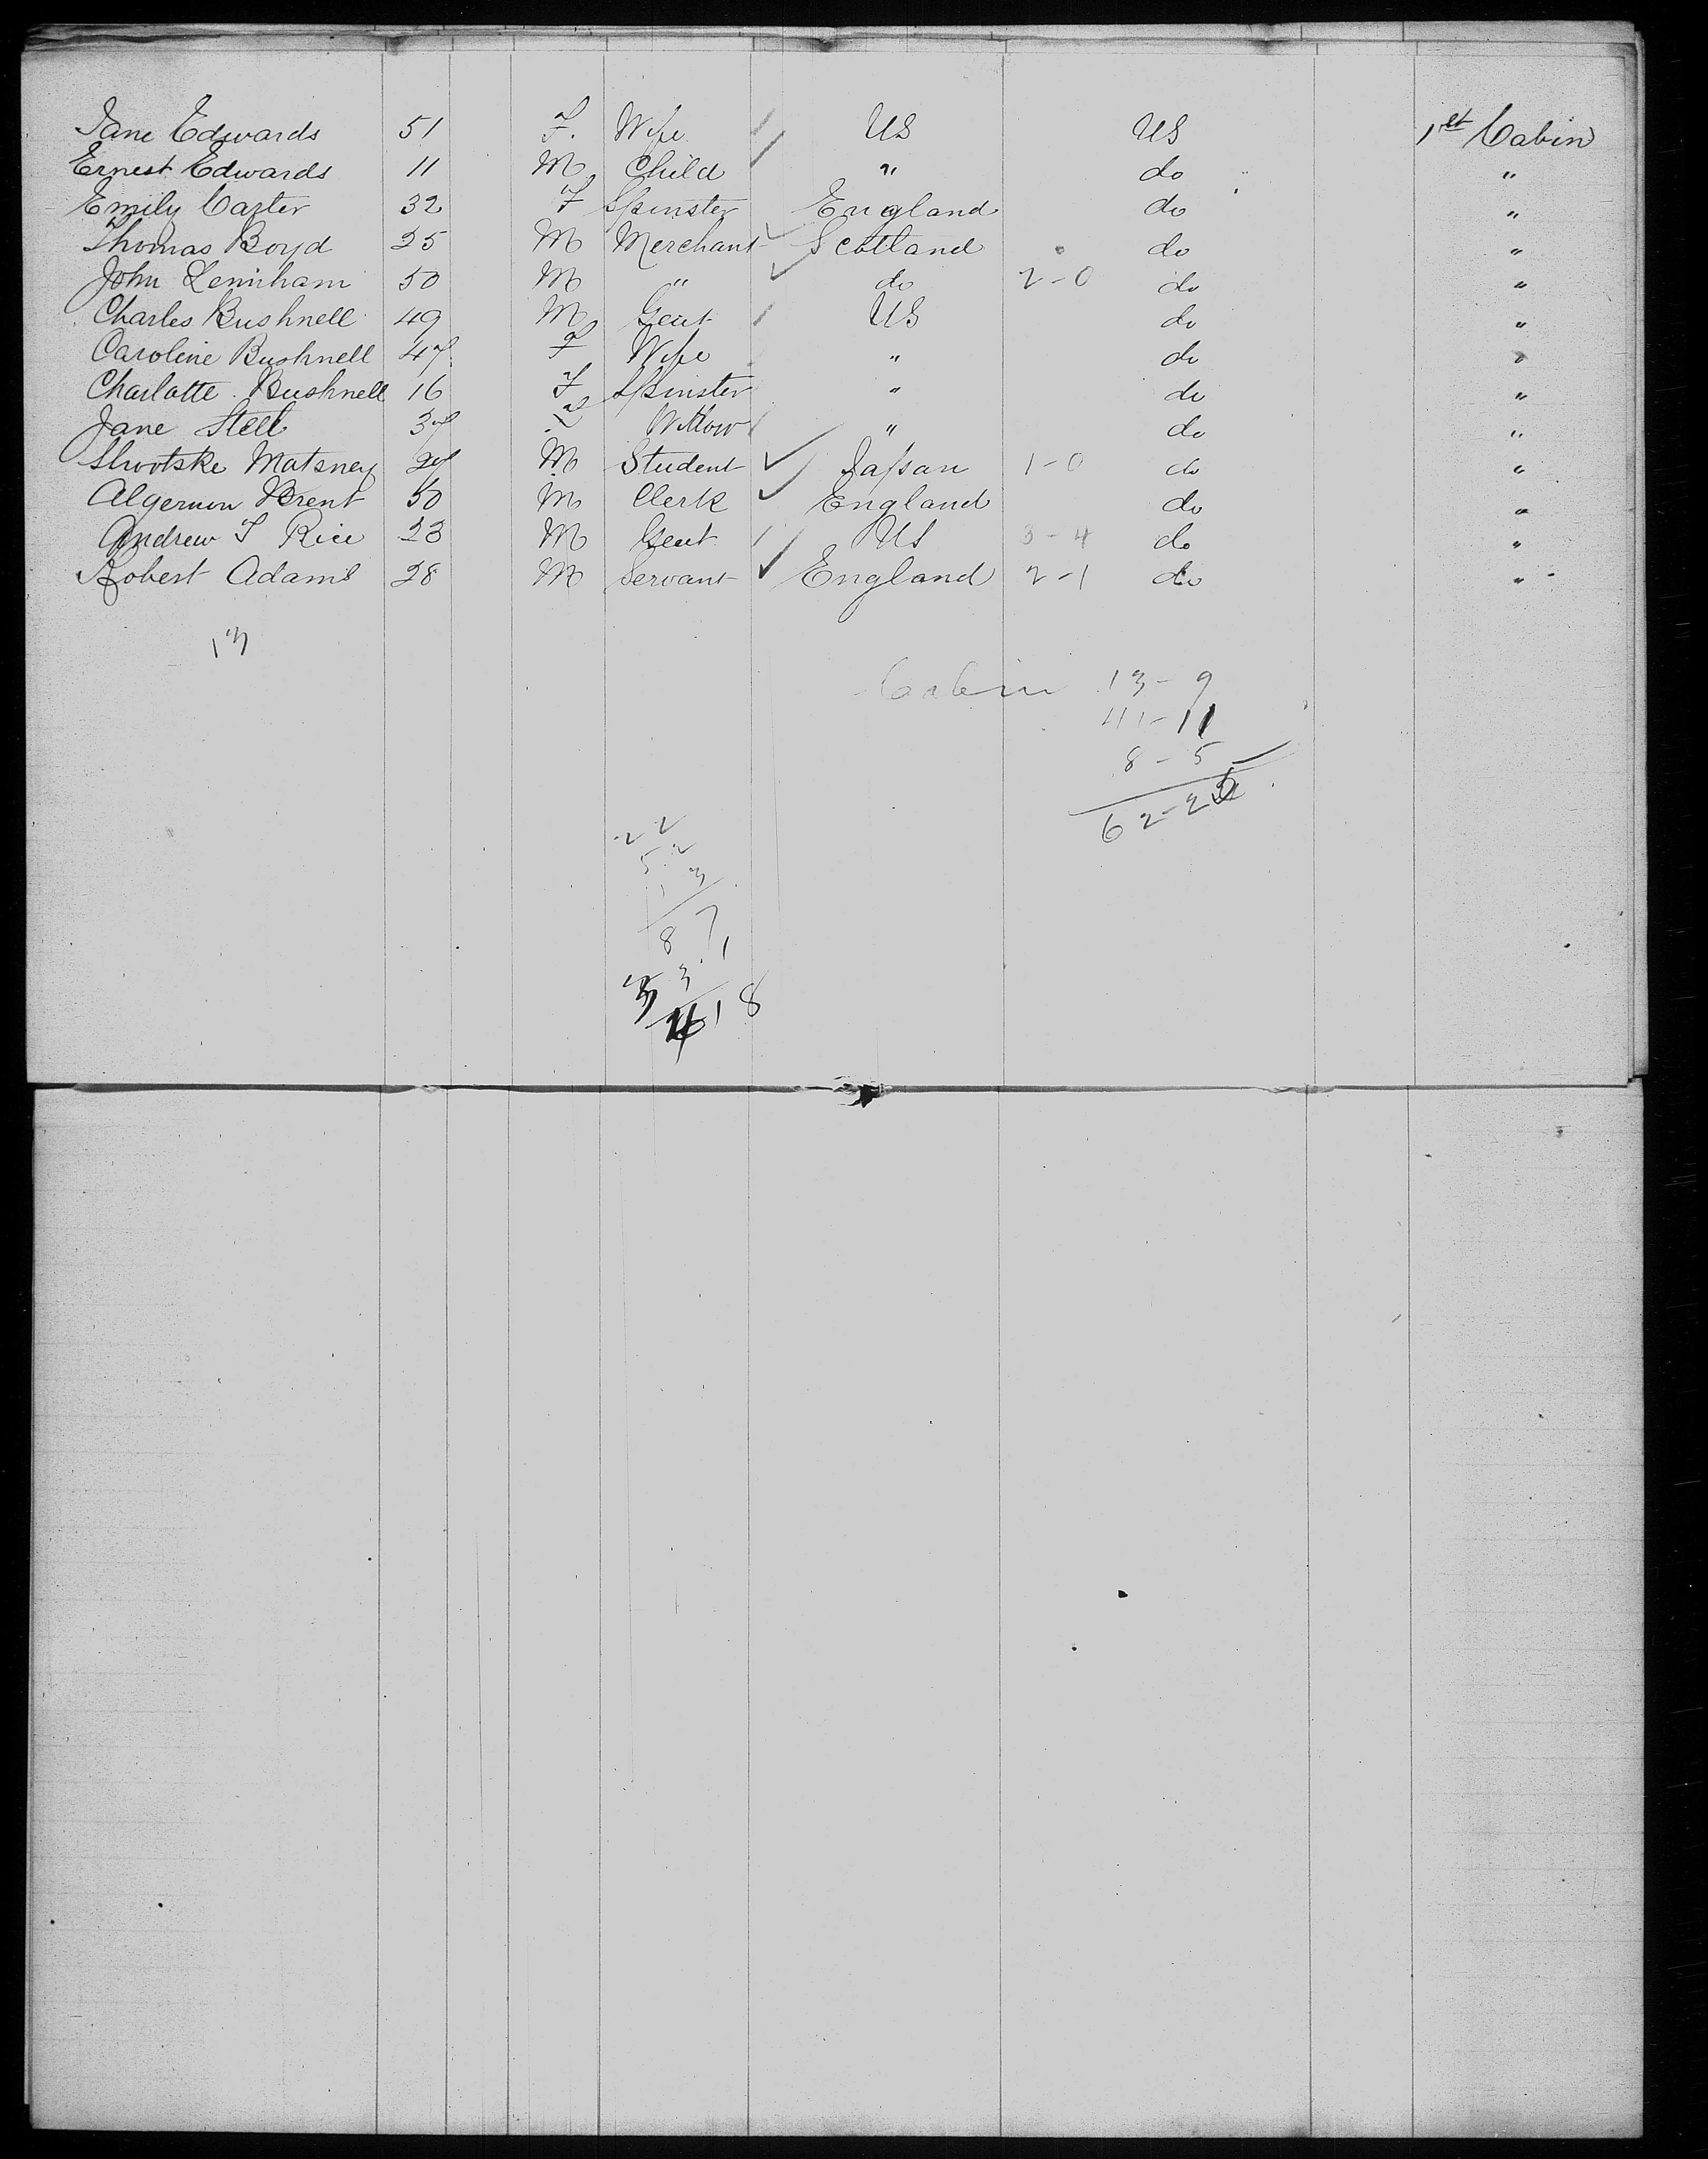 Jane Edwards 51 F. Wife US US 1st Cabin
Ernest Edwards 11 M Child " do "
Emily Carter 32 F Spinster England do "
Thomas Boyd 25 M Merchant Scotland do "
John Leniham 50 M " do 2-0 do "
Charles Bushnell 49 M Gent US do "
Caroline Bushnell 47 F Wife " do "
Charlotte Bushnell 16 F Spinster " do "
Jane Stell 37 F Widow " do "
Shvotske Matsney 27 M Student Japan 1-0 do "
Algernon Brent 50 M Clerk England do "
Andrew T Rice 23 M Gent US 3-4 do "
Robert Adams 28 M Servant England 2-1 do "
13
Cabin 13-9
41-11
8-5
62-25
8 7